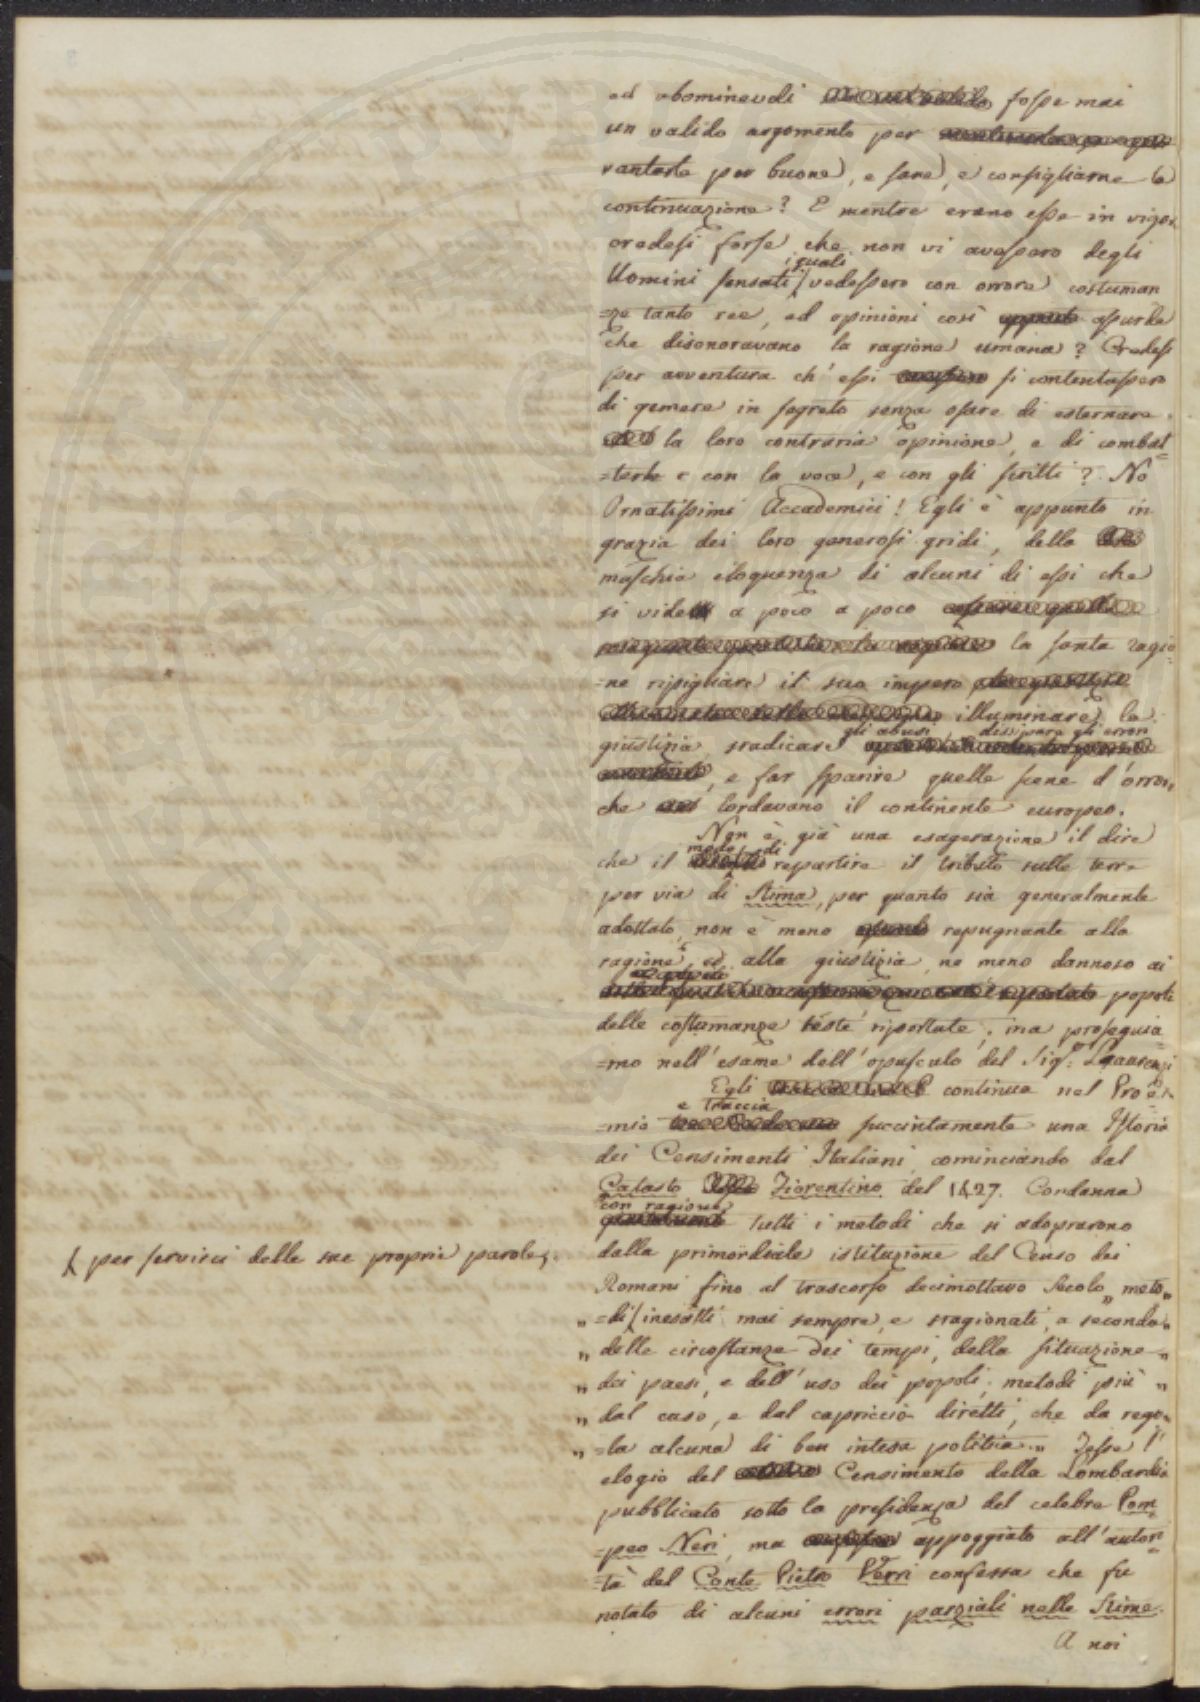 ed abominevoli fosse mai
un valido argomento per
vantarle per buone, e sane, e consigliarne la
continuazione? E mentre erano esse in vigor
credesi forse che non vi avessero degli
Uomini sensati i quali vedessero con orrore costuman
=ze tanto ree, ed opinioni così assurde
che disonoravano la ragione umana? Credesi
per avventura ch'essi si contentassero
di gemere in segreto senza osare di esternare
la loro contraria opinione, e di combat
=terle e con la voce, e con gli scritti? No
Ornatissimi Accademici! Egli è appunto in
grazia dei loro generosi gridi, della
maschia eloquenza di alcuni di essi che
si vide a poco a poco
la santa ragio
=ne ripigliare il suo impero
illuminare la
giustizia sradicare gli abusi, dissipare gli errori
e far sparire quelle scene d'orrore
che lordavano il continente europeo.
Non è già una esagerazione il dire
che il modo di repartire il tributo sulle terre
per via di Stima, per quanto sia generalmente
adottato, non è meno repugnante alla
ragione, ed alla giustizia, ne meno dannoso ai
popoli
delle costumanze testé riportate; ma proseguia
=mo nell'esame dell'opusculo del Sig:
Egli continua nel Proe
=mio e traccia succintamente una Istoria
dei Censimenti Italiani cominciando dal
Catasto Fiorentino del 1427. Condanna
con ragione tutti i metodi che si adoprarono
dalla primordiale istituzione del Censo dei
Romani fino al trascorso decimottavo Secolo „ meto „
per servirci delle sue proprie parole
„ =di inesatti mai sempre, e sragionati, a seconda „
„ delle circostanze dei tempi, della situazione „
„ dei paesi, e dell'uso dei popoli; metodi più „
„ dal caso, e dal capriccio diretti, che da rego „
„ =la alcuna di ben intesa politica. „ Tesse l'
elogio del Censimento della Lombardia
pubblicato sotto la presidenza del celebre Pom
=peo Neri, ma appoggiato all'autori
=tà del Conte Pietro Verri confessa che fu
notato di alcuni errori parziali nelle Stime.
A noi